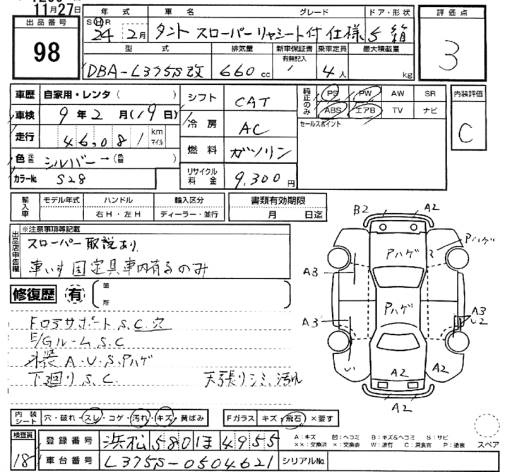 11月27日
出品番号 98
年式 車名 グレード ドア・形状 評価点
S H R 24年2月 タント スローパーリヤシート付仕様 5 箱 3
型式 排気量 新車保証書 有無記入 乗車定員 最大積載量
DBA-L375S改 660cc 4人 kg
車歴 自家用・レンタ( ) シフト CAT 純正のみ PS PW AW SR 内装評価
車検 9年2月(19日) ABS エアB TV ナビ C
走行 46,081 km マイル 冷房 AC セールスポイント
色 シルバー→ 燃料 ガソリン
カラーNo. S28 リサイクル料金 9,300円
輸入車 モデル年式 ハンドル 右H・左H 輸入区分 ディーラー・並行 書類有効期限 月 日迄
出品店申告欄 ※注意事項等記載
スローパー取説あり
車いす固定具車内有るのみ
修復歴 有 箇所
Fロアサポート S.C.穴
E/Gルーム S.C
外装 A.U.S.Pハゲ
下廻り S.C 天張りシミ、汚れ
B2 A2
Pハゲ Pハゲ
A3 Pハゲ
A3 A3 U2
A2 A2
A2
内装シート 穴・破れ・スレ・コゲ・汚れ・キズ・黄ばみ Fガラス キズ・飛石・×要す
A:キズ U:凹ヘコミ B:キズ&ヘコミ S:サビ スペア
検査員 18 登録番号 浜松 580ほ4955
車台番号 L375S-0504621 シリアルNo.